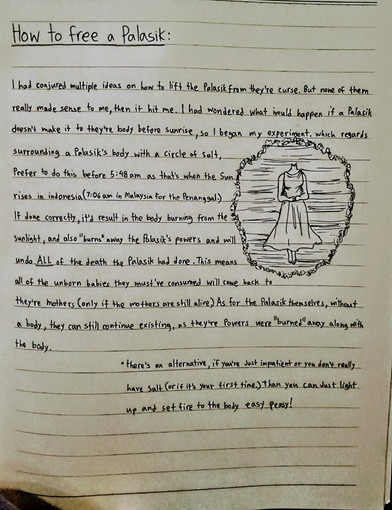 How to free a Palasik:
I had conjured multiple ideas on how to lift the Palasik from they're curse. But none of them
really made sense to me, then it hit me. I had wondered what would happen if a Palasik
doesn't make it to they're body before sunrise, so I began my experiment. which regards
surrounding a Palasik's body with a circle of salt,
Prefer to do this before 5:48 am as that's when the sun
rises in indonesia (7:06 am in Malaysia for the Penanggal)
If done correctly, it'd result in the body burning from the
sunlight, and also "burns" away the Palasik's powers and will
undo ALL of the death the Palasik had done. This means
all of the unborn babies they must've consumed will come back to
they're mothers (only if the mothers are still alive) As for the Palasik themselves, without
a body, they can still continue existing, as they're Powers were "burned" away along with
the body.
*there's an alternative, if you're just impatient or you don't really
have salt (or if it's your first time.) Than you can just light
up and set fire to the body easy peasy!